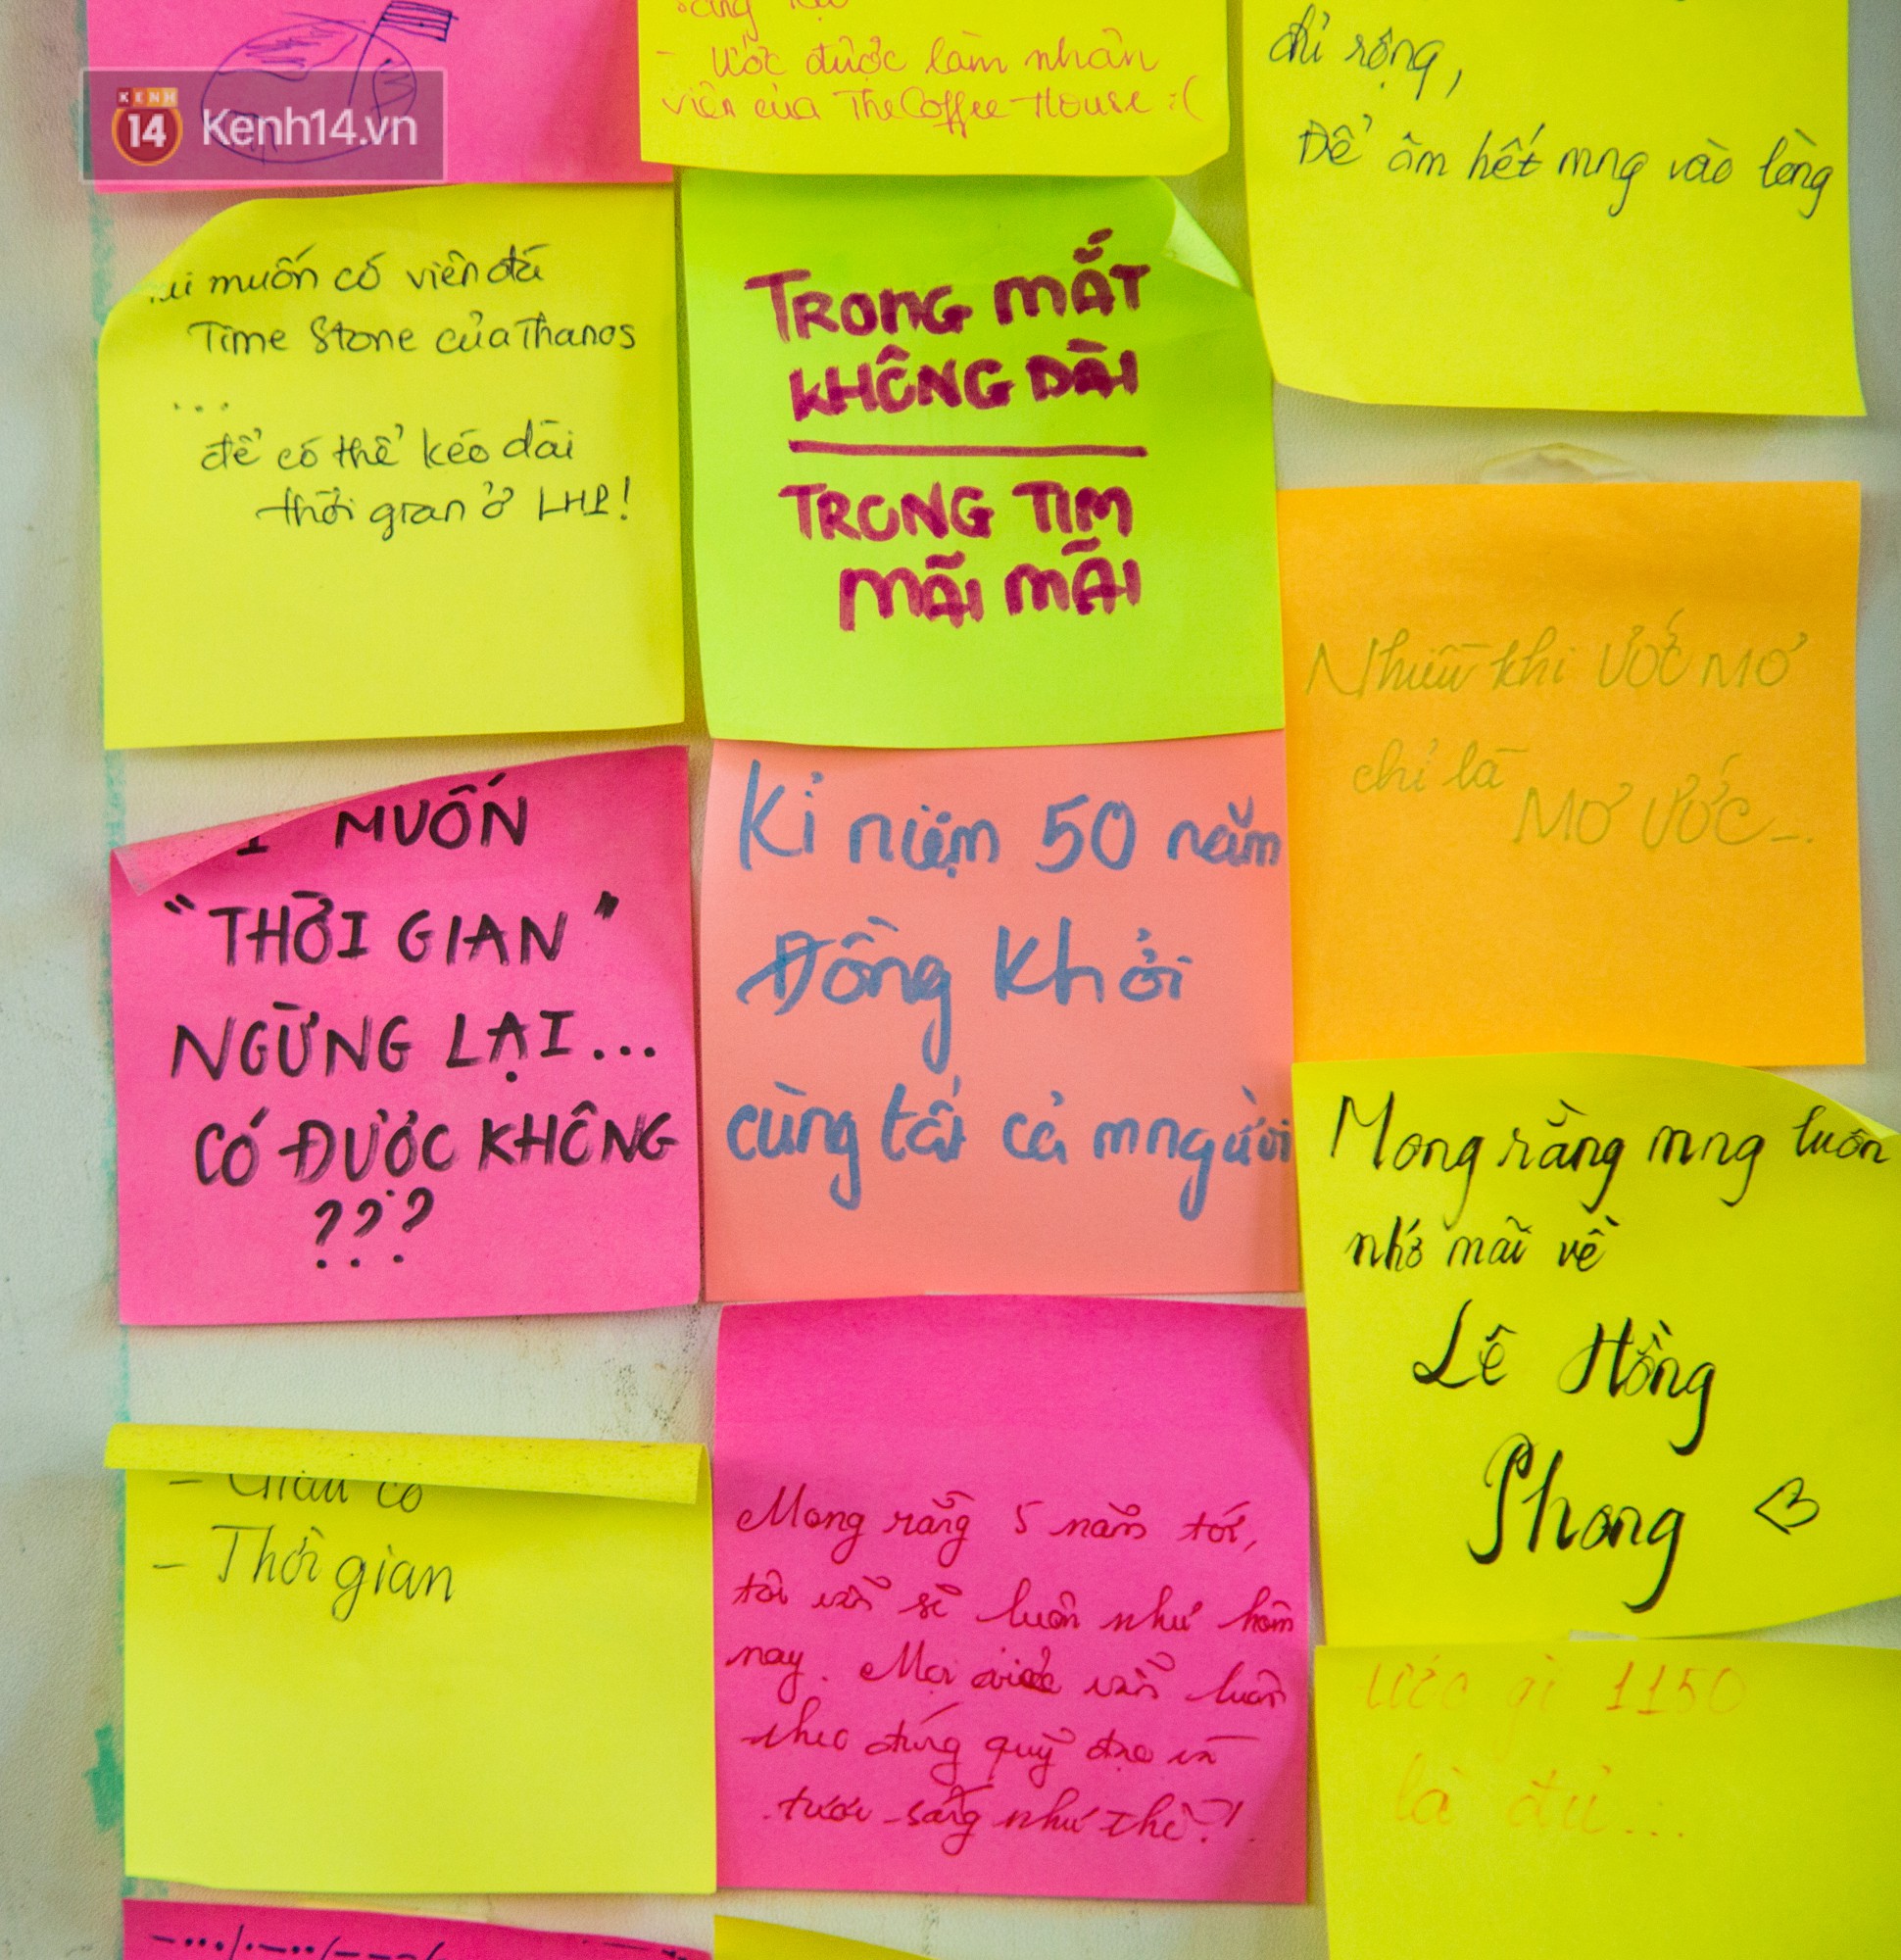 KENH
14
Kenh14.vn
- Ước được làm nhân
viên của The Coffee House :(
chỉ rộng,
Để ôm hết mng vào lòng
muốn có viên đá
Time Stone của Thanos
...
để có thể kéo dài
thời gian ở LHP!
TRONG MẮT
KHÔNG DÀI
TRONG TIM
MÃI MÃI
Nhiều khi ƯỚC MƠ
chỉ là
MƠ ƯỚC...
I MUỐN
"THỜI GIAN"
NGỪNG LẠI...
CÓ ĐƯỢC KHÔNG
???
Kỉ niệm 50 năm
Đồng Khởi
cùng tất cả mngười
Mong rằng mng luôn
nhớ mãi về
Lê Hồng
Phong <3
- Giàu có
- Thời gian
Mong rằng 5 năm tới,
tôi vẫn sẽ luôn như hôm
nay. Mọi việc vẫn luôn
theo đúng quỹ đạo và
tươi sáng như thế?!
Ước gì 1150
là đủ...